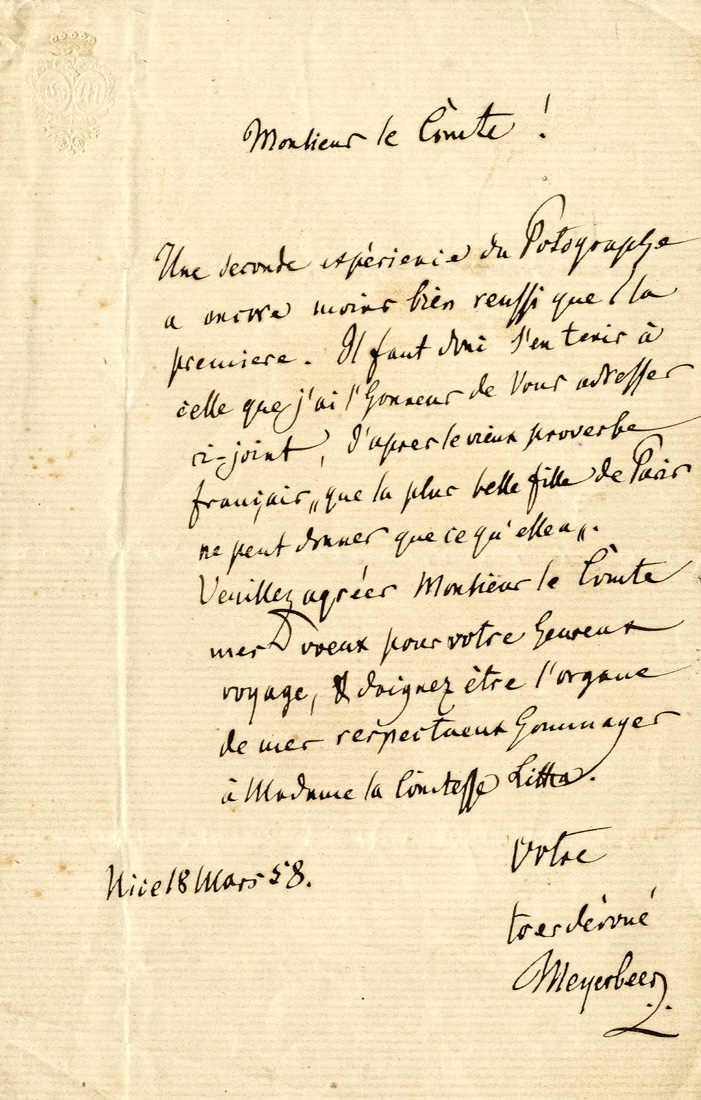 GM
Monsieur le Comte !
Une seconde expérience du Potographe
a encore moins bien reussi que la
premiere. Il faut donc s'en tenir à
celle que j'ai l'honneur de Vous adresser
ci-joint, d'apres le vieux proverbe
français „que la plus belle fille de Paris
ne peut donner que ce qu'elle a„.
Veuillez agréer Monsieur le Comte
mes voeux pour votre heureux
voyage, & daignez être l'organe
de mes respectueux hommages
à Madame la Comtesse Litta.
Votre
tres dévoué
Meyerbeer
Nice 18 Mars 58.